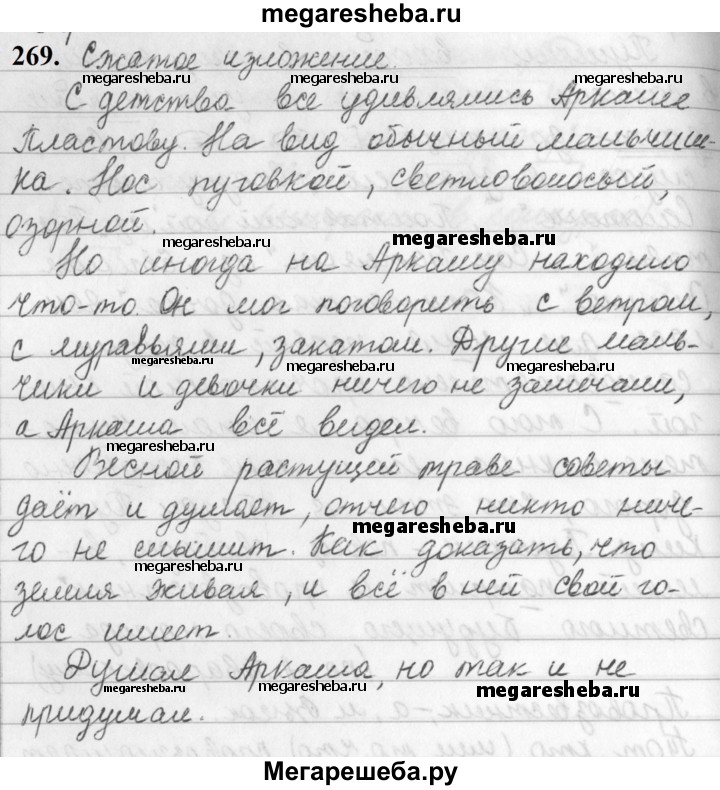 megaresheba.ru
269. Сжатое изложение.
megaresheba.ru megaresheba.ru megaresheba.ru
С детства все удивлялись Аркаше
Пластову. На вид обычный мальчиш-
ка. Нос пуговкой, светловолосый,
озорной.
megaresheba.ru megaresheba.ru
Но иногда на Аркашу находило
что-то. Он мог поговорить с ветром,
с муравьями, закатом. Другие маль-
megaresheba.ru megaresheba.ru megaresheba.ru
чики и девочки ничего не замечали,
а Аркаша всё видел.
megaresheba.ru
Весной растущей траве советы
даёт и думает, отчего никто ниче-
megaresheba.ru
го не слышит. Как доказать, что
megaresheba.ru
земля живая, и всё в ней свой го-
лос имеет.
Думал Аркаша, но так и не
megaresheba.ru megaresheba.ru megaresheba.ru
придумал.
Мегарешеба.ру